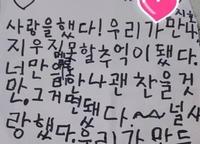 사랑을했다! 우리가만나
지우지못할추억이됐다.
너만 하나괜찬을것
만.그거면됐다.~~널사
랑했다.우리가만든